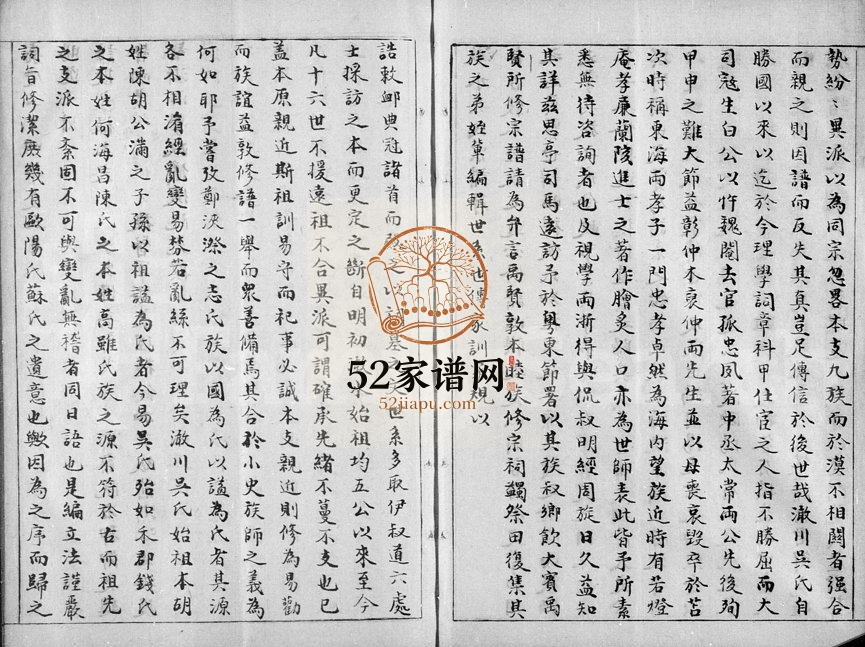 勢紛〻異派以為同宗忽畧本支九族而於漠不相關者强合
而親之則因譜而反失其真豈足傳信於後世哉澉川吳氏自
勝國以來以迄於今理學詞章科甲仕宦之人指不勝屈而大
司寇生白公以忤魏閹去官孤忠夙著中丞太常兩公先後殉
甲申之難大節益彰仲木裒仲兩先生並以母喪哀毀卒於苫
次時稱東海兩孝子一門忠孝卓然為海内望族近時有若燈
庵孝廉蘭陔進士之著作膾炙人口亦為世師表此皆予所素
悉無待咨詢者也及視學兩浙得與侃叔明經周旋日久益知
其詳兹思亭司馬遠訪予於粵東節署以其族叔鄉飲大賓禹
賢所修宗譜請為弁言禹賢敦本睦族修宗祠蠲祭田復集其
族之弟姪輩編輯世系也傳家訓 規以
誥敕邮典冠諸首而 之以 墓 世系多取伊叔道六處
士採訪之本而更定之斷自明初 始祖均五公以來至今
凡十六世不援遠祖不合異派可謂確承先緒不蔓不支也已
蓋本原親近斯祖訓易守而祀事必誠本支親近則修為易勸
而族誼益敦修譜一舉而衆善備焉其合於小史族師之義為
何如耶予嘗攷鄭浹漈之志氏族以國為氏以謚為氏者其源
各不相淆經亂變易棼若亂絲不可理矣澉川吳氏始祖本胡
姓陳胡公滿之子孫以祖謚為氏者今易吳氏殆如禾郡錢氏
之本姓何海昌陳氏之本姓高雖氏族之源不符於古而祖先
之支派不紊固不可與變亂無稽者同日語也是編立法謹嚴
詞旨修潔庶幾有歐陽氏蘇氏之遺意也歟因為之序而歸之
52家谱网
52jiapu.com